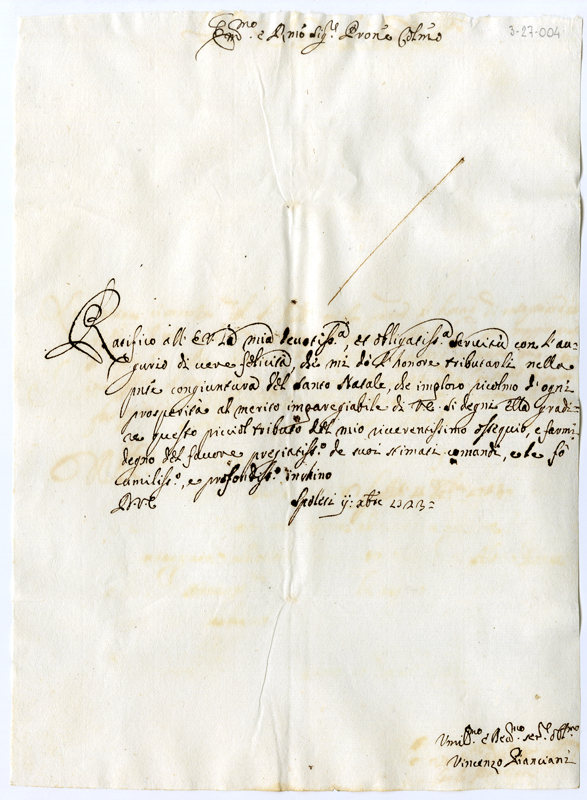 Em.mo e R.mo Sig.r Prone Colmo
3-27-004
Ratifico all' E.V. la mia devotiss.a et obligatiss.a servitù con l'au=
gurio di vere felicità, che mi dò l'honore tributarli nella
pnte congiuntura del Santo Natale, che imploro picolmo di ogni
prosperità al merito impareggiabile di V.E. si degni ella gradi=
re questo picciol tributo del mio riverentissimo ossequio, e farmi
degno del favore pregiatiss.o de suoi stimati comandi, e le fò
umiliss.o, e profondiss.o inchino
D.V.E. Spoleti
Umil.mo e Dev.mo ser.e obl.mo
Vincenzo Pianciani